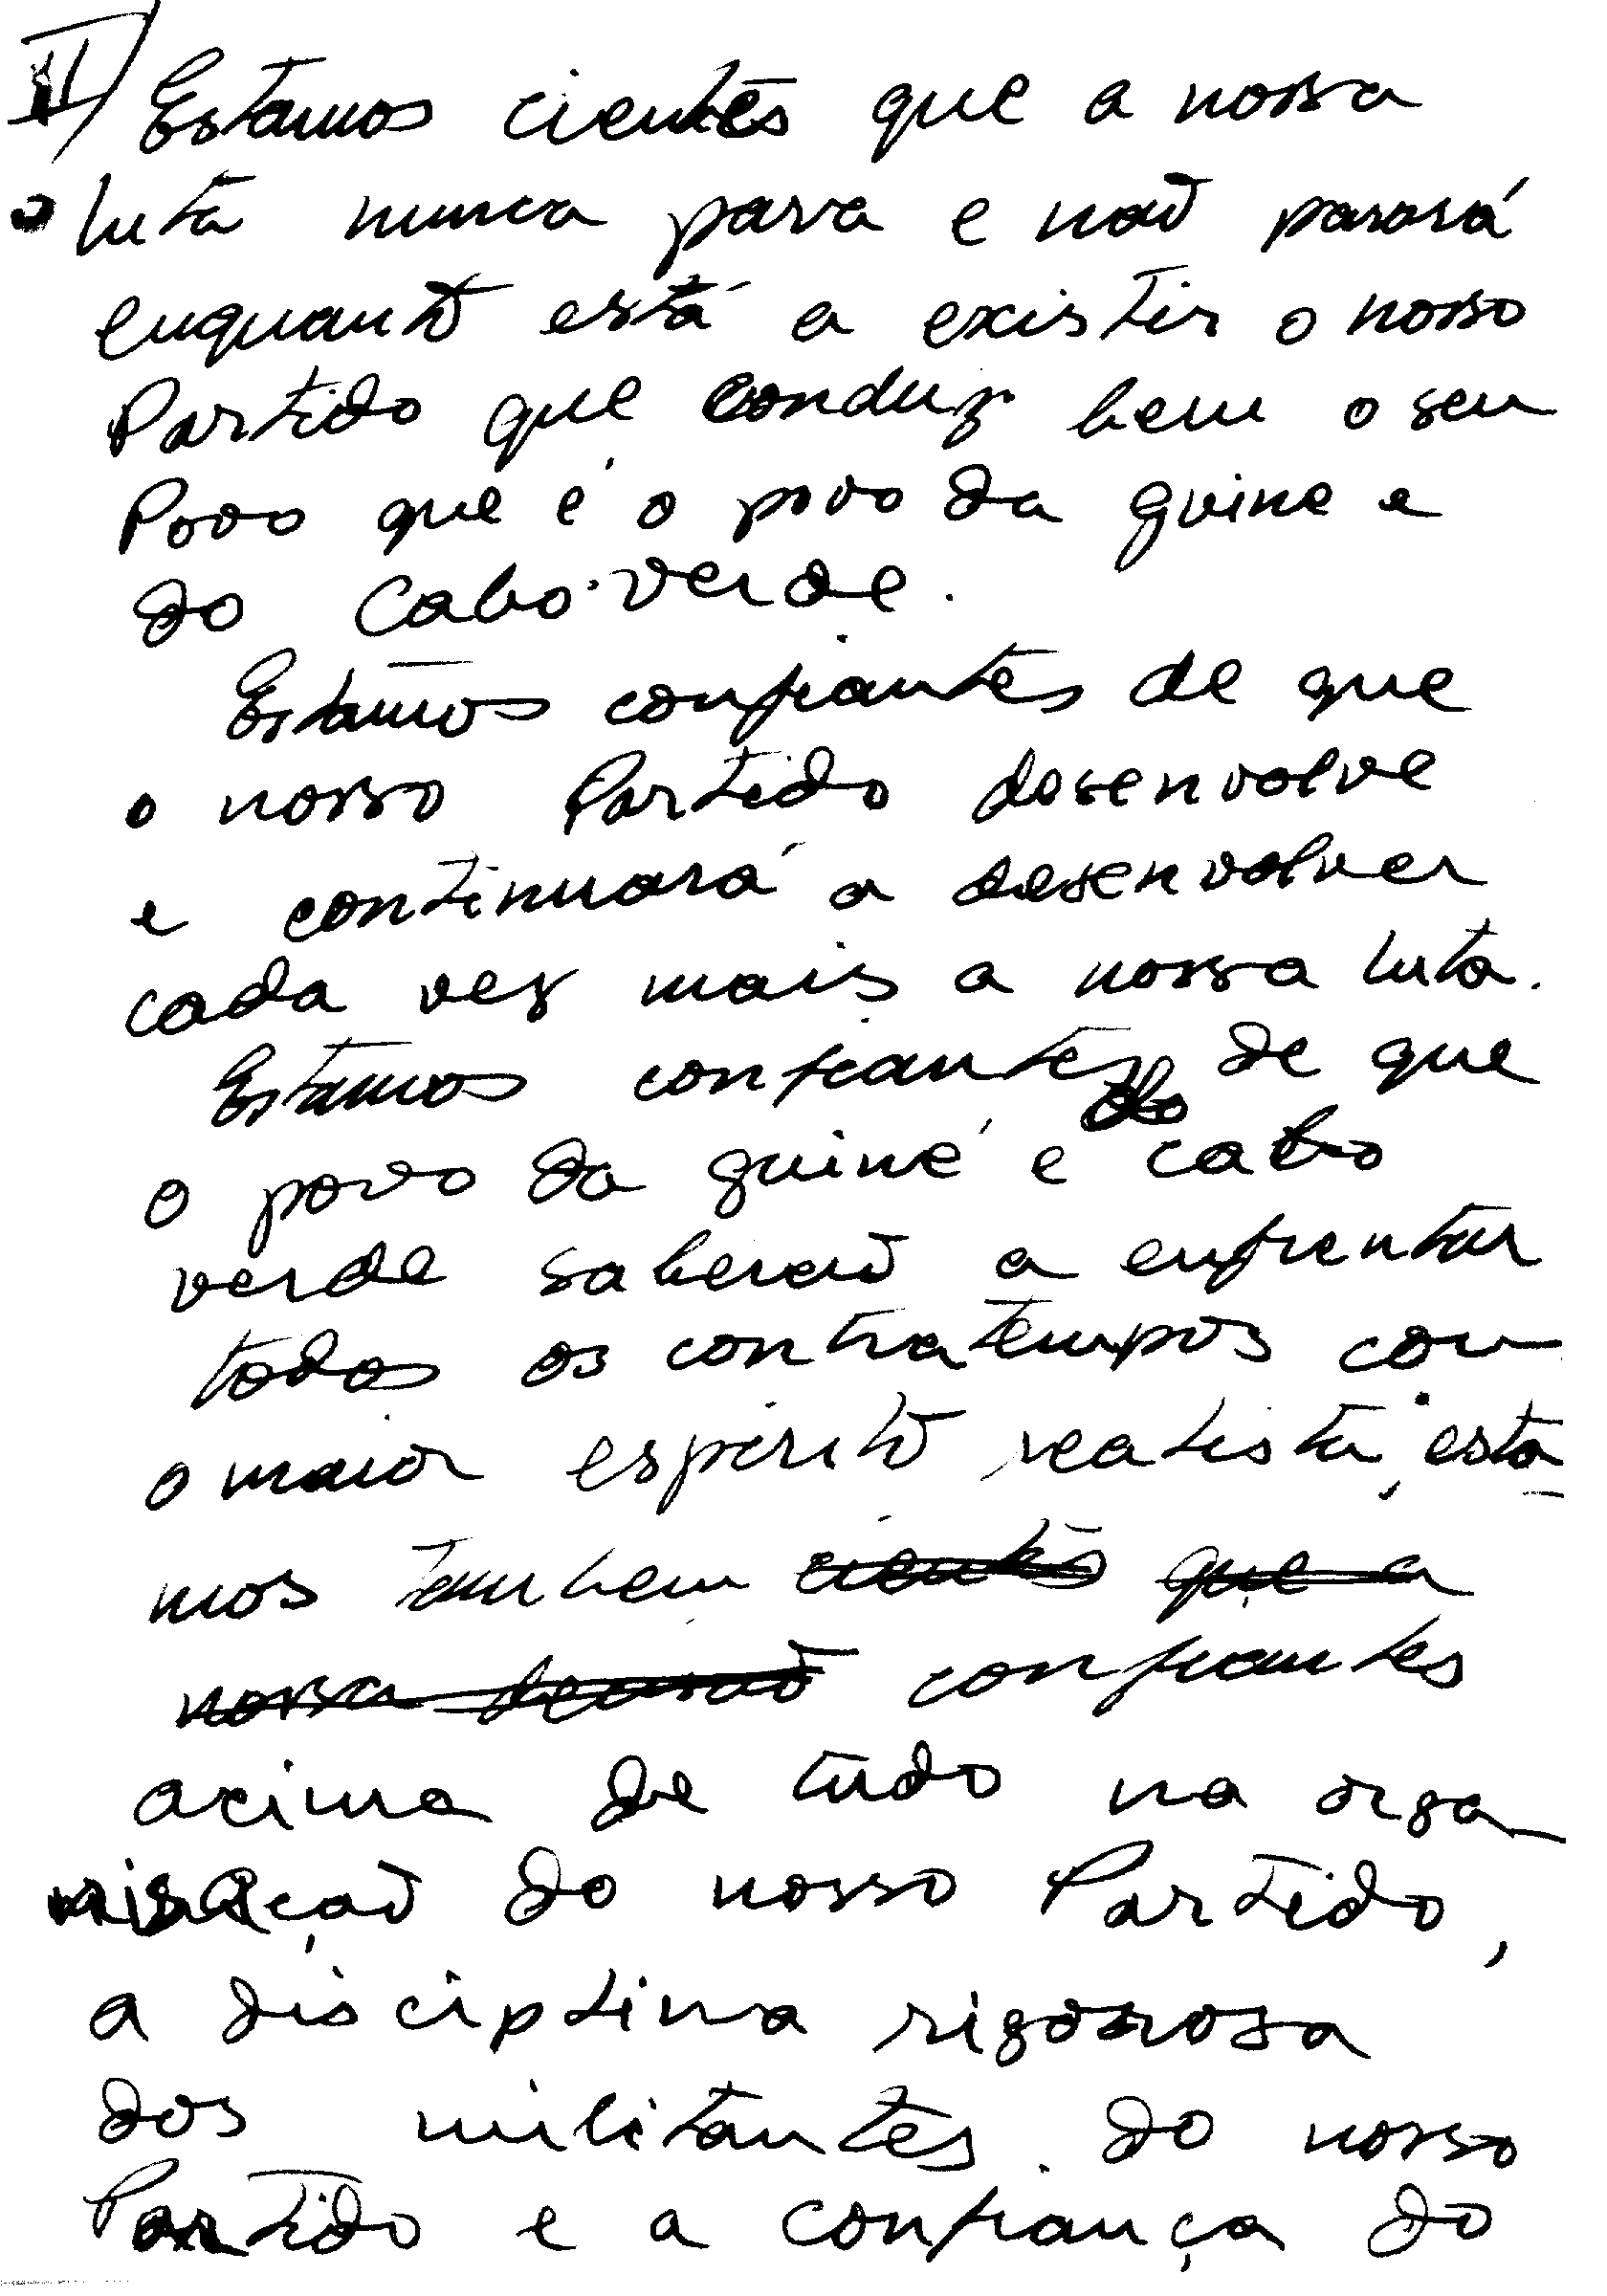 II/ Estamos cientes que a nossa
luta nunca para e não parará
enquanto está a existir o nosso
Partido que conduz bem o seu
Povo que é o povo da guine e
do Cabo-verde.
Estamos confiantes de que
o nosso Partido desenvolve
e continuará a desenvolver
cada vez mais a nossa luta.
Estamos confiantes de que
o povo da guiné e do cabo
verde saberaõ a enfrentar
todos os contratempos com
o maior espirito realista, esta
mos tambem cientes que a
nossa decisaõ confiantes
acima de tudo na orga
nisaçaõ do nosso Partido,
a disciplina rigorosa
dos militantes do nosso
Partido e a confiança do